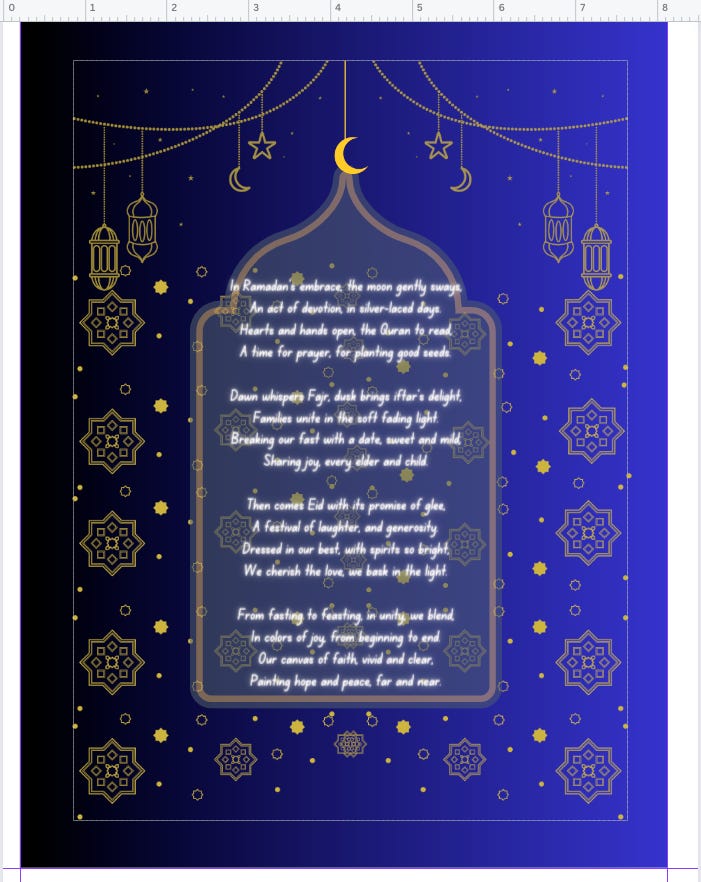 0 1 2 3 4 5 6 7 8
In Ramadan's embrace, the moon gently sways,
An act of devotion, in silver-laced days.
Hearts and hands open, the Quran to read,
A time for prayer, for planting good seeds.
Dawn whispers Fajr, dusk brings iftar's delight,
Families unite in the soft fading light.
Breaking our fast with a date, sweet and mild,
Sharing joy, every elder and child.
Then comes Eid with its promise of glee,
A festival of laughter, and generosity.
Dressed in our best, with spirits so bright,
We cherish the love, we bask in the light.
From fasting to feasting, in unity, we blend,
In colors of joy, from beginning to end.
Our canvas of faith, vivid and clear,
Painting hope and peace, far and near.